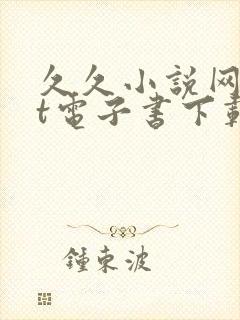 久久小說网
t電子書下載
鍾東波